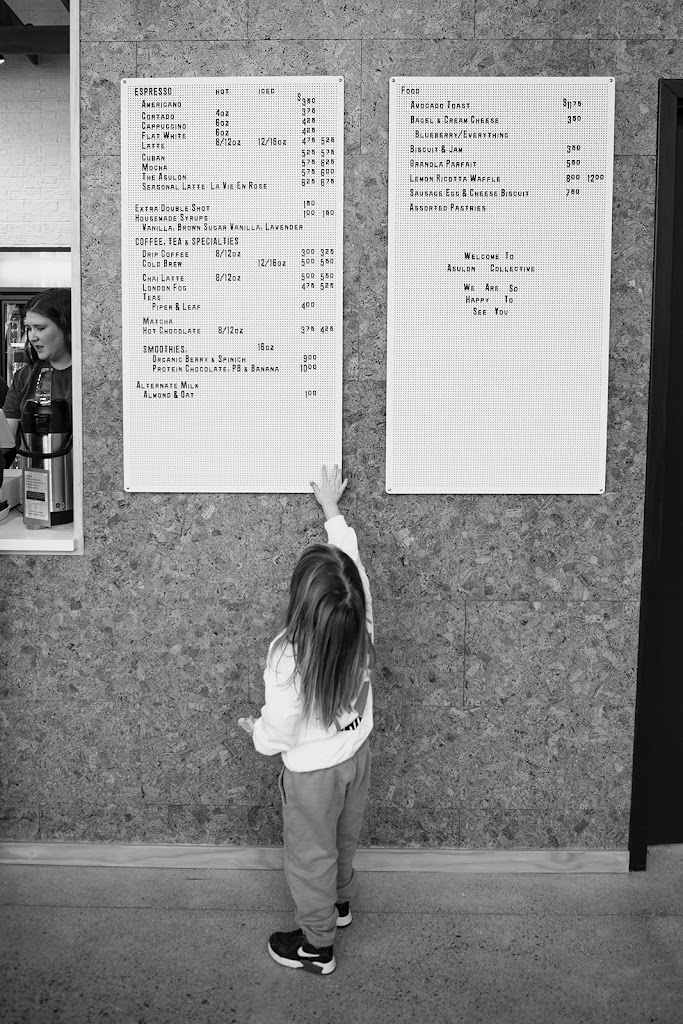 ESPRESSO HOT ICED
AMERICANO $3.50
CORTADO 4OZ 3.75
CAPPUCCINO 6OZ 4.25
FLAT WHITE 6OZ 4.25
LATTE 8/12OZ 12/16OZ 4.75 5.25
CUBAN 5.25 5.75
MOCHA 5.75 6.25
THE ASULON 5.75 6.00
SEASONAL LATTE LA VIE EN ROSE 6.25 6.75
EXTRA DOUBLE SHOT 1.50
HOUSEMADE SYRUPS 1.00 1.50
VANILLA, BROWN SUGAR VANILLA, LAVENDER
COFFEE, TEA & SPECIALTIES
DRIP COFFEE 8/12OZ 3.00 3.25
COLD BREW 12/16OZ 5.00 5.50
CHAI LATTE 8/12OZ 5.00 5.50
LONDON FOG 4.75 5.25
TEAS
PIPER & LEAF 4.00
MATCHA
HOT CHOCOLATE 8/12OZ 3.75 4.25
SMOOTHIES: 16OZ
ORGANIC BERRY & SPINICH 9.00
PROTEIN CHOCOLATE, PB & BANANA 10.00
ALTERNATE MILK
ALMOND & OAT 1.00
FOOD
AVOCADO TOAST $11.75
BAGEL & CREAM CHEESE 3.50
BLUEBERRY/EVERYTHING
BISCUIT & JAM 3.50
GRANOLA PARFAIT 5.50
LEMON RICOTTA WAFFLE 8.00 12.00
SAUSAGE EGG & CHEESE BISCUIT 7.50
ASSORTED PASTRIES
WELCOME TO
ASULON COLLECTIVE
WE ARE SO
HAPPY TO
SEE YOU